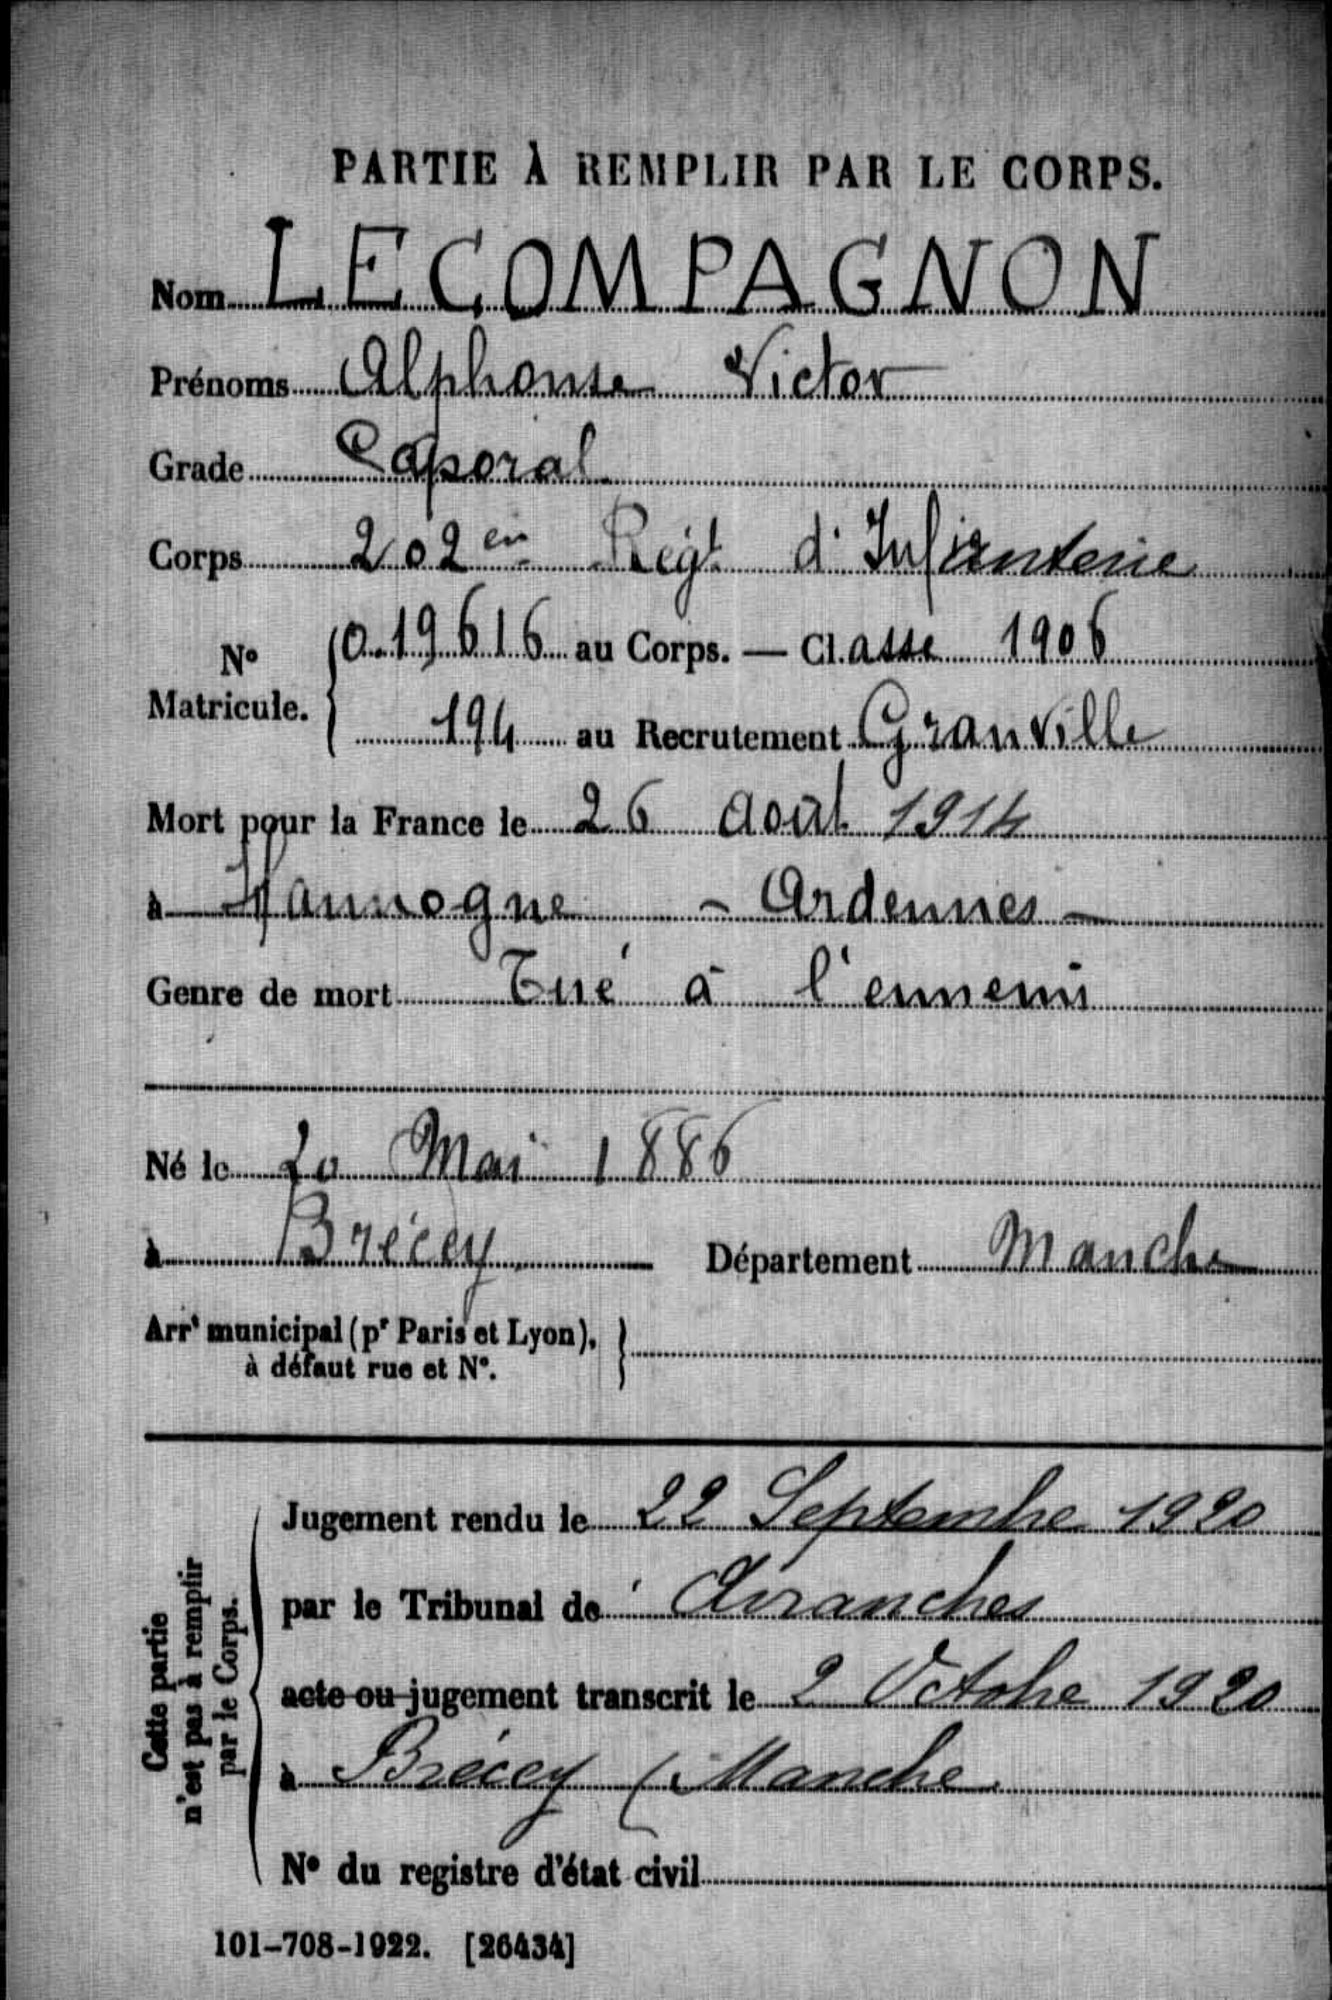 PARTIE À REMPLIR PAR LE CORPS.
Nom LECOMPAGNON
Prénoms Alphonse Victor
Grade Caporal
Corps 202em Régt d'Infanterie
No Matricule. 0.19616 au Corps. — Cl. asse 1906
194 au Recrutement Granville
Mort pour la France le 26 Août 1914
à Hannogne - Ardennes -
Genre de mort Tué à l'ennemi
Né le 20 Mai 1886
à Brécey Département Manche
Arrt municipal (pr Paris et Lyon),
à défaut rue et No.
Cette partie
n'est pas à remplir
par le Corps.
Jugement rendu le 22 Septembre 1920
par le Tribunal de Avranches
acte ou jugement transcrit le 2 Octobre 1920
à Brécey (Manche
No du registre d'état civil
101-708-1922. [26434]